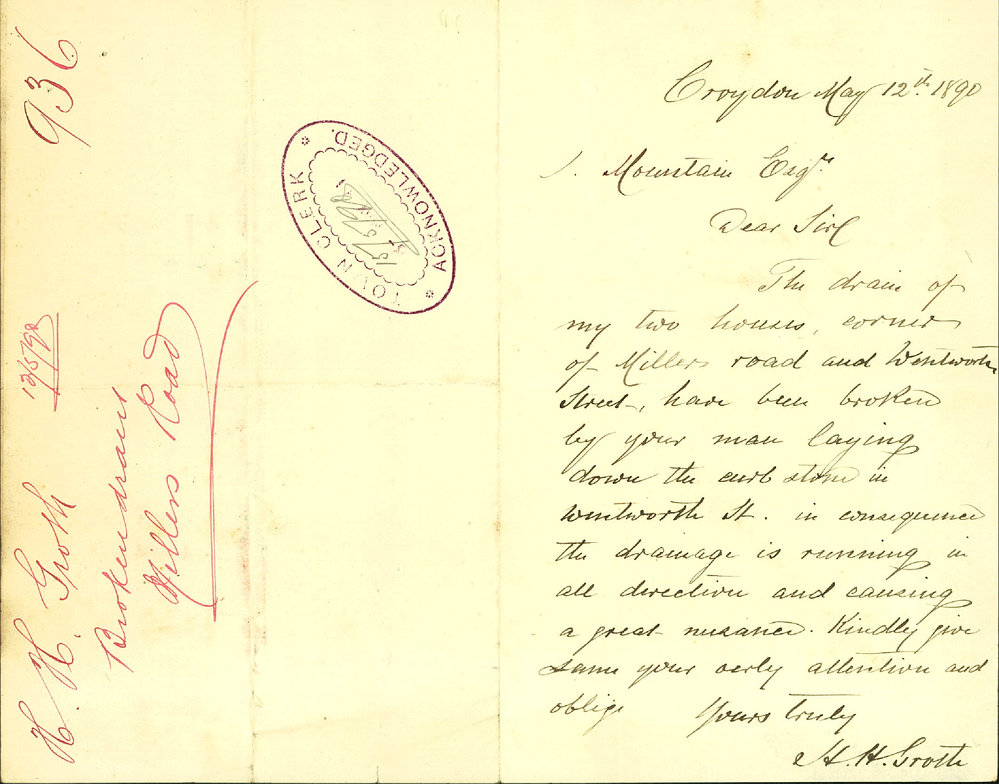 H. H. Groth 12/5/90 936
Broken drains
Millers Road
* TOWN CLERK * ACKNOWLEDGED.
Croydon May 12th. 1890
J. Mountain Esqre
Dear Sir
The drain of
my two houses, corner
of Millers road and Wentworth
Street, have been broken
by your man laying
down the curb stone in
Wentworth St. in consequence
the drainage is running in
all direction and causing
a great nusance. Kindly give
same your early attention and
oblige Yours truly
H. H. Groth